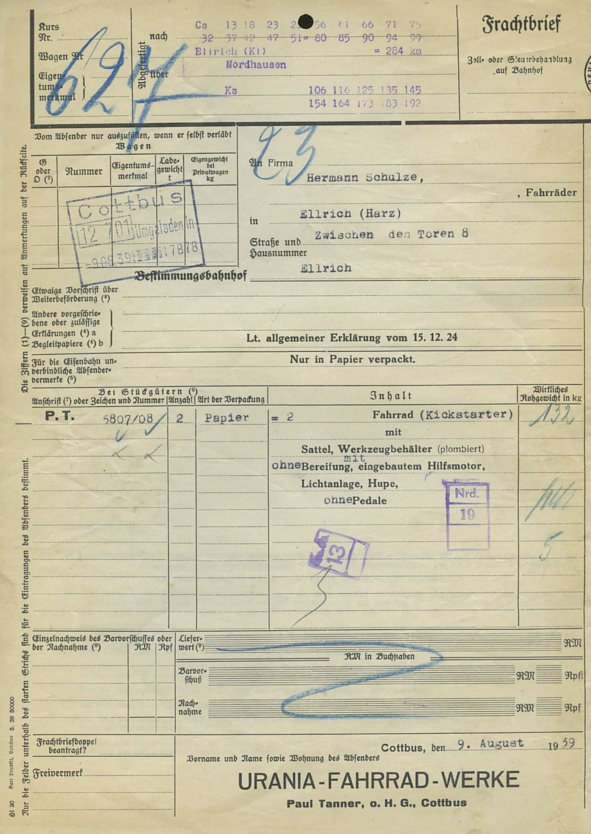 Kurs
Nr.
Wagen Nr.
Eigen
tums
merkmal
627
Abgefertigt
nach
über
Cs 13 18 23 56 61 66 71 76
32 37 42 47 51= 80 85 90 94 99
Ellrich (Kl) = 284 km
Nordhausen
Ks 106 116 125 135 145
154 164 173 183 192
Frachtbrief
Zoll- oder Steuerbehandlung
auf Bahnhof
Vom Absender nur auszufüllen, wenn er selbst verlädt
Wagen
G
oder
O (³)
Nummer
Eigentums-
merkmal
Lade-
gewicht
t
Eigengewicht
bei
Privatwagen
kg
Cottbus
12 701 Umgeladen in
-9.08.39 17878
23
An Firma
Hermann Schulze,
, Fahrräder
in
Ellrich (Harz)
Straße und
Hausnummer
Zwischen den Toren 8
Bestimmungsbahnhof
Ellrich
Etwaige Vorschrift über
Weiterbeförderung (⁴)
Andere vorgeschrie-
bene oder zulässige
Erklärungen (⁴) a
Begleitpapiere (⁴) b
Lt. allgemeiner Erklärung vom 15. 12. 24
Für die Eisenbahn un-
verbindliche Absender-
vermerke (⁵)
Nur in Papier verpackt.
Die Ziffern (1)—(9) verweisen auf Anmerkungen auf der Rückseite.
Bei Stückgütern (⁶)
Anschrift (⁷) oder Zeichen und Nummer
Anzahl
Art der Verpackung
Inhalt
Wirkliches
Rohgewicht in kg
P. T. 5807/08 2 Papier = 2 Fahrrad (Kickstarter) 132
mit
Sattel, Werkzeugbehälter (plombiert)
mit
ohne Bereifung, eingebautem Hilfsmotor,
Lichtanlage, Hupe,
ohne Pedale
Nrd.
19
5
13
Nur die Felder unterhalb des starken Strichs sind für die Eintragungen des Absenders bestimmt.
Einzelnachweis des Barvorschusses oder
der Nachnahme (⁹)
RM Rpf
Liefer-
wert (⁸)
RM
RM in Buchstaben
Barvor-
schuß
RM Rpf
Nach-
nahme
RM Rpf
Frachtbriefdoppel
beantragt?
Freivermerk
Cottbus, den 9. August 1939
Vorname und Name sowie Wohnung des Absenders
URANIA-FAHRRAD-WERKE
Paul Tanner, o. H. G., Cottbus